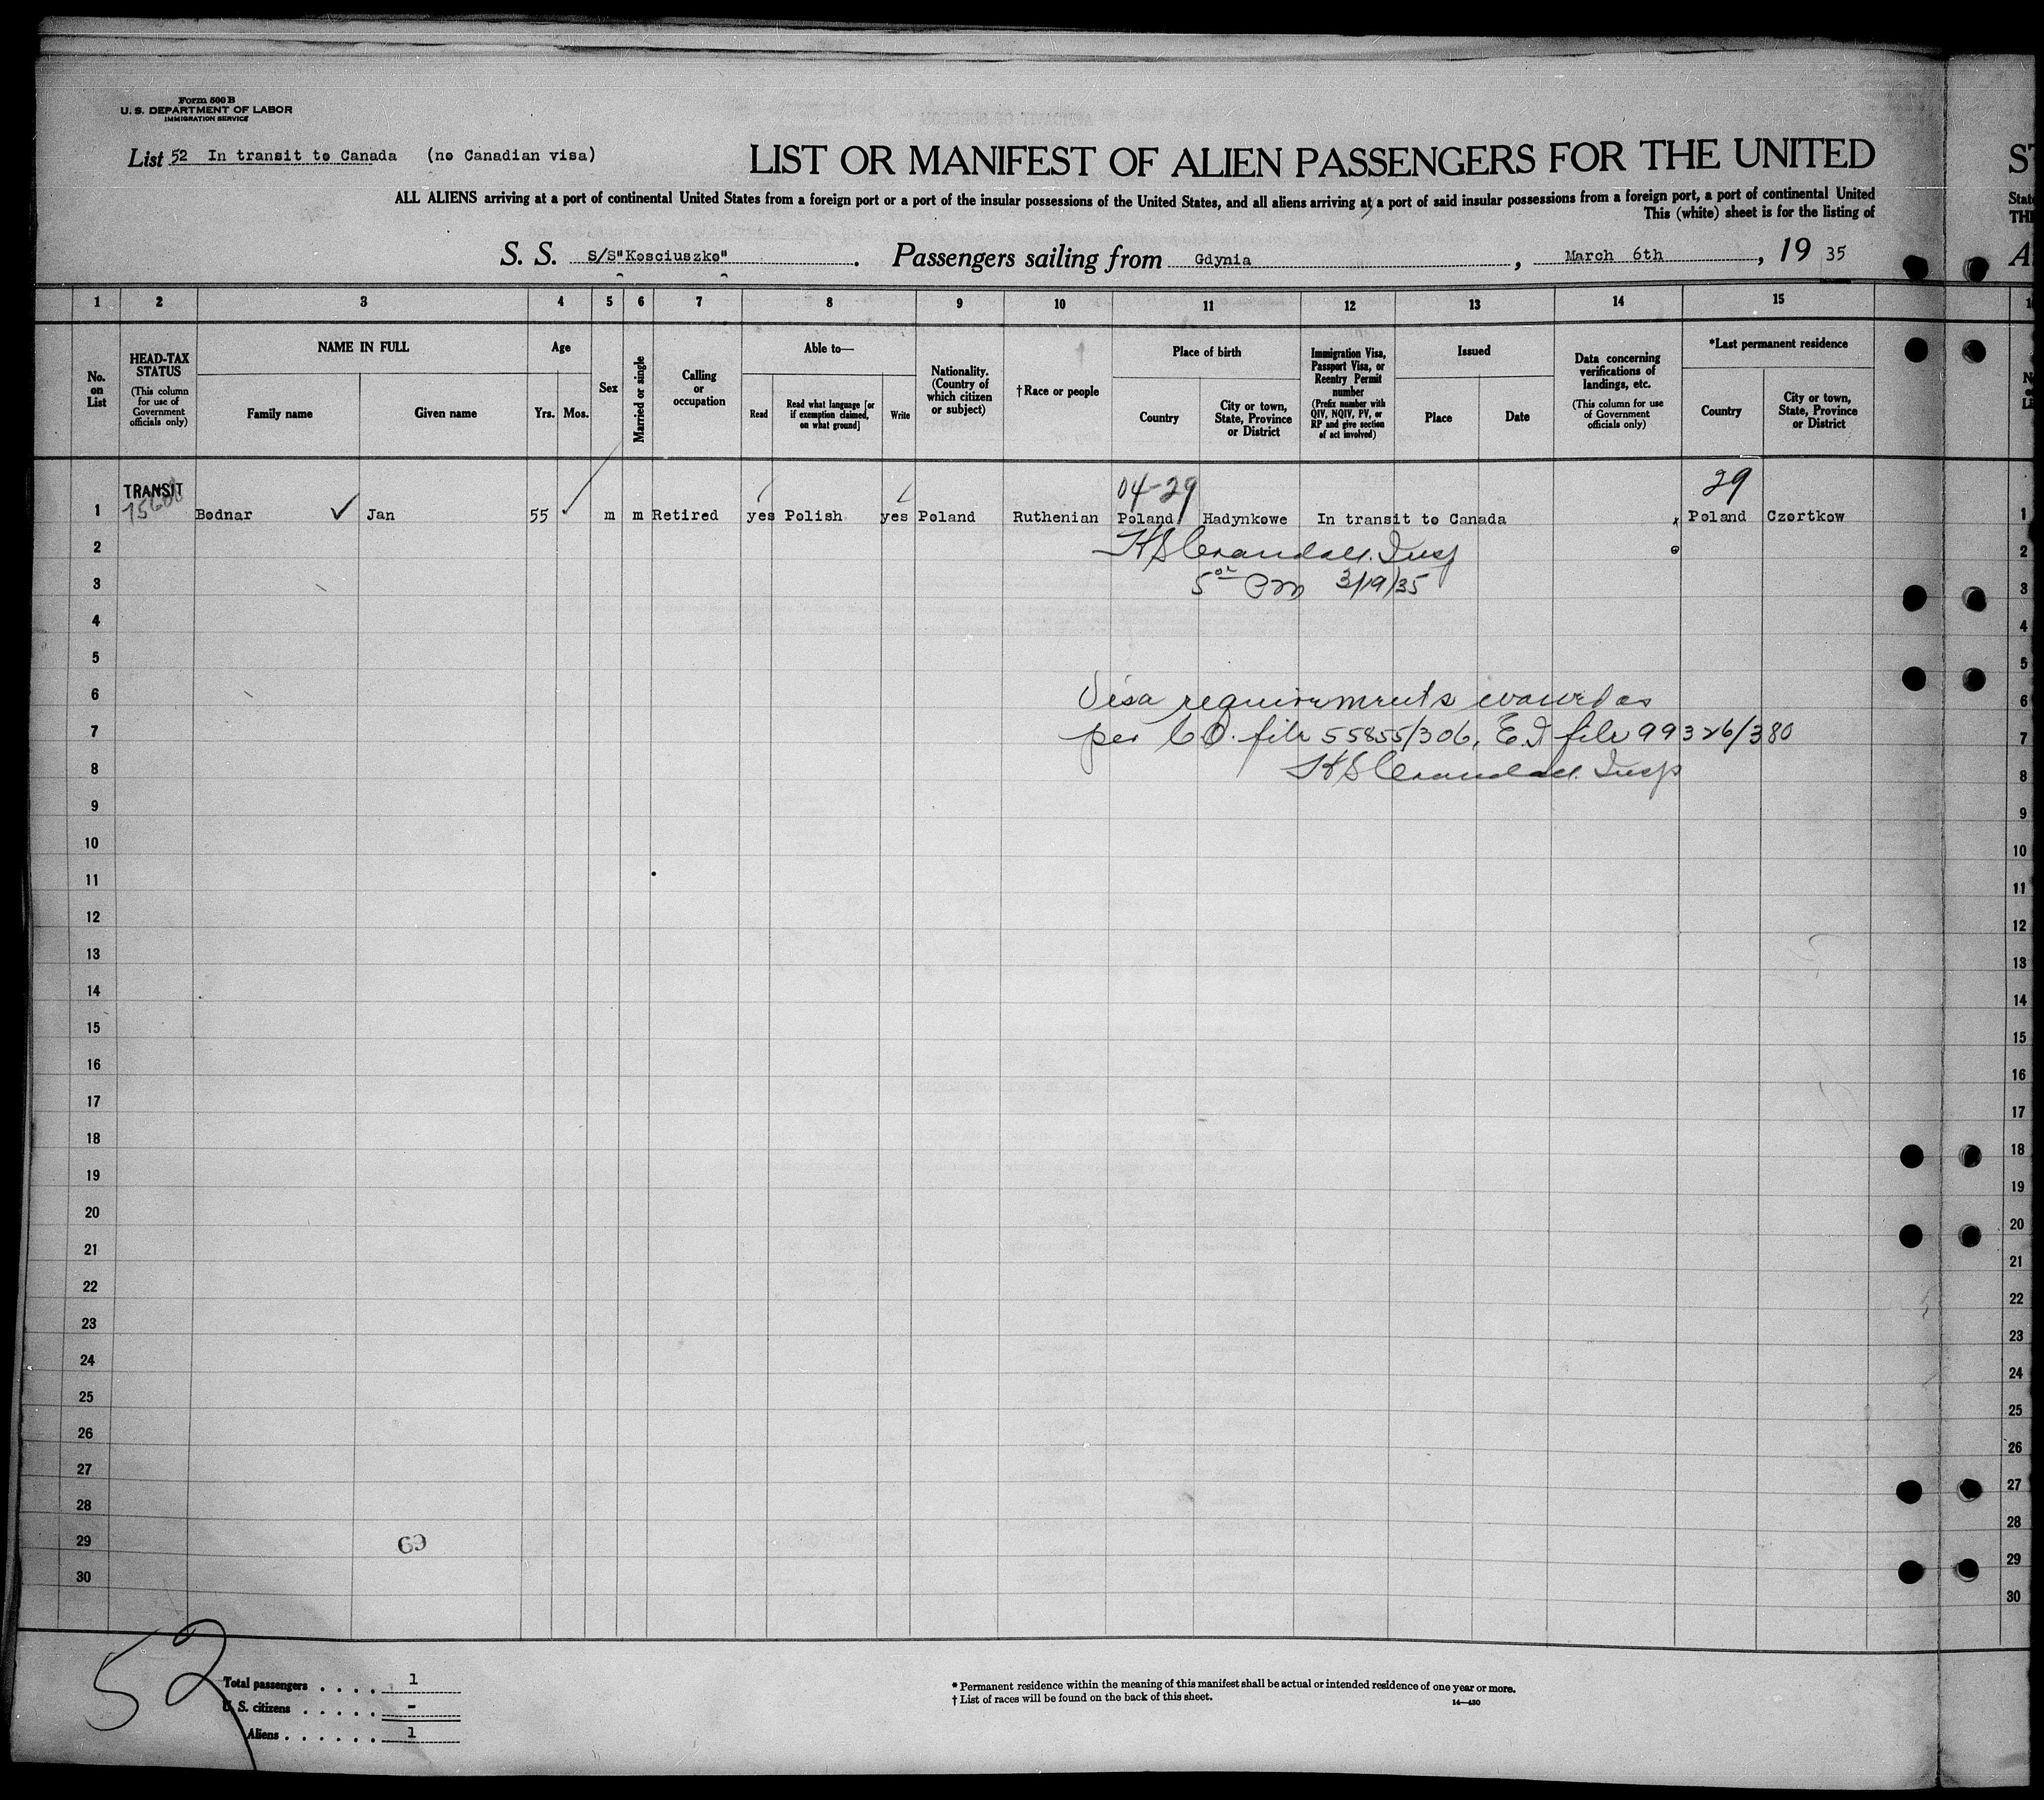 Form 500 B
U. S. DEPARTMENT OF LABOR
IMMIGRATION SERVICE
List 52 In transit to Canada (no Canadian visa)
LIST OR MANIFEST OF ALIEN PASSENGERS FOR THE UNITED
ST
ALL ALIENS arriving at a port of continental United States from a foreign port or a port of the insular possessions of the United States, and all aliens arriving at a port of said insular possessions from a foreign port, a port of continental United
State
This (white) sheet is for the listing of
TH
S. S. S/S"Kosciuszko". Passengers sailing from Gdynia, March 6th, 19 35
1 2 3 4 5 6 7 8 9 10 11 12 13 14 15
No. on List
HEAD-TAX STATUS
(This column for use of Government officials only)
NAME IN FULL
Family name
Given name
Age
Yrs.
Mos.
Sex
Married or single
Calling or occupation
Able to—
Read
Read what language [or if exemption claimed, on what ground]
Write
Nationality. (Country of which citizen or subject)
† Race or people
Place of birth
Country
City or town, State, Province or District
Immigration Visa, Passport Visa, or Reentry Permit number
(Prefix number with QIV, NQIV, PV, or RP and give section of act involved)
Issued
Place
Date
Data concerning verifications of landings, etc.
(This column for use of Government officials only)
*Last permanent residence
Country
City or town, State, Province or District
TRANSIT
04-29
29
1 Bodnar ✓ Jan 55 ✓ m m Retired yes Polish yes Poland Ruthenian Poland Hadynkowe In transit to Canada x Poland Czortkow 1
2 HS Crandall. Insp 2
3 5 00 PM 3/19/35 3
4 4
5 5
6 Visa requirements waived as 6
7 per C.O. file 55855/306, E.I file 99326/380 7
8 HS Crandall. Insp 8
9 9
10 10
11 11
12 12
13 13
14 14
15 15
16 16
17 17
18 18
19 19
20 20
21 21
22 22
23 23
24 24
25 25
26 26
27 27
28 28
29 69 29
30 30
52
Total passengers . . . . 1
U. S. citizens . . . . . -
Aliens . . . . . . 1
* Permanent residence within the meaning of this manifest shall be actual or intended residence of one year or more.
† List of races will be found on the back of this sheet.
14—430